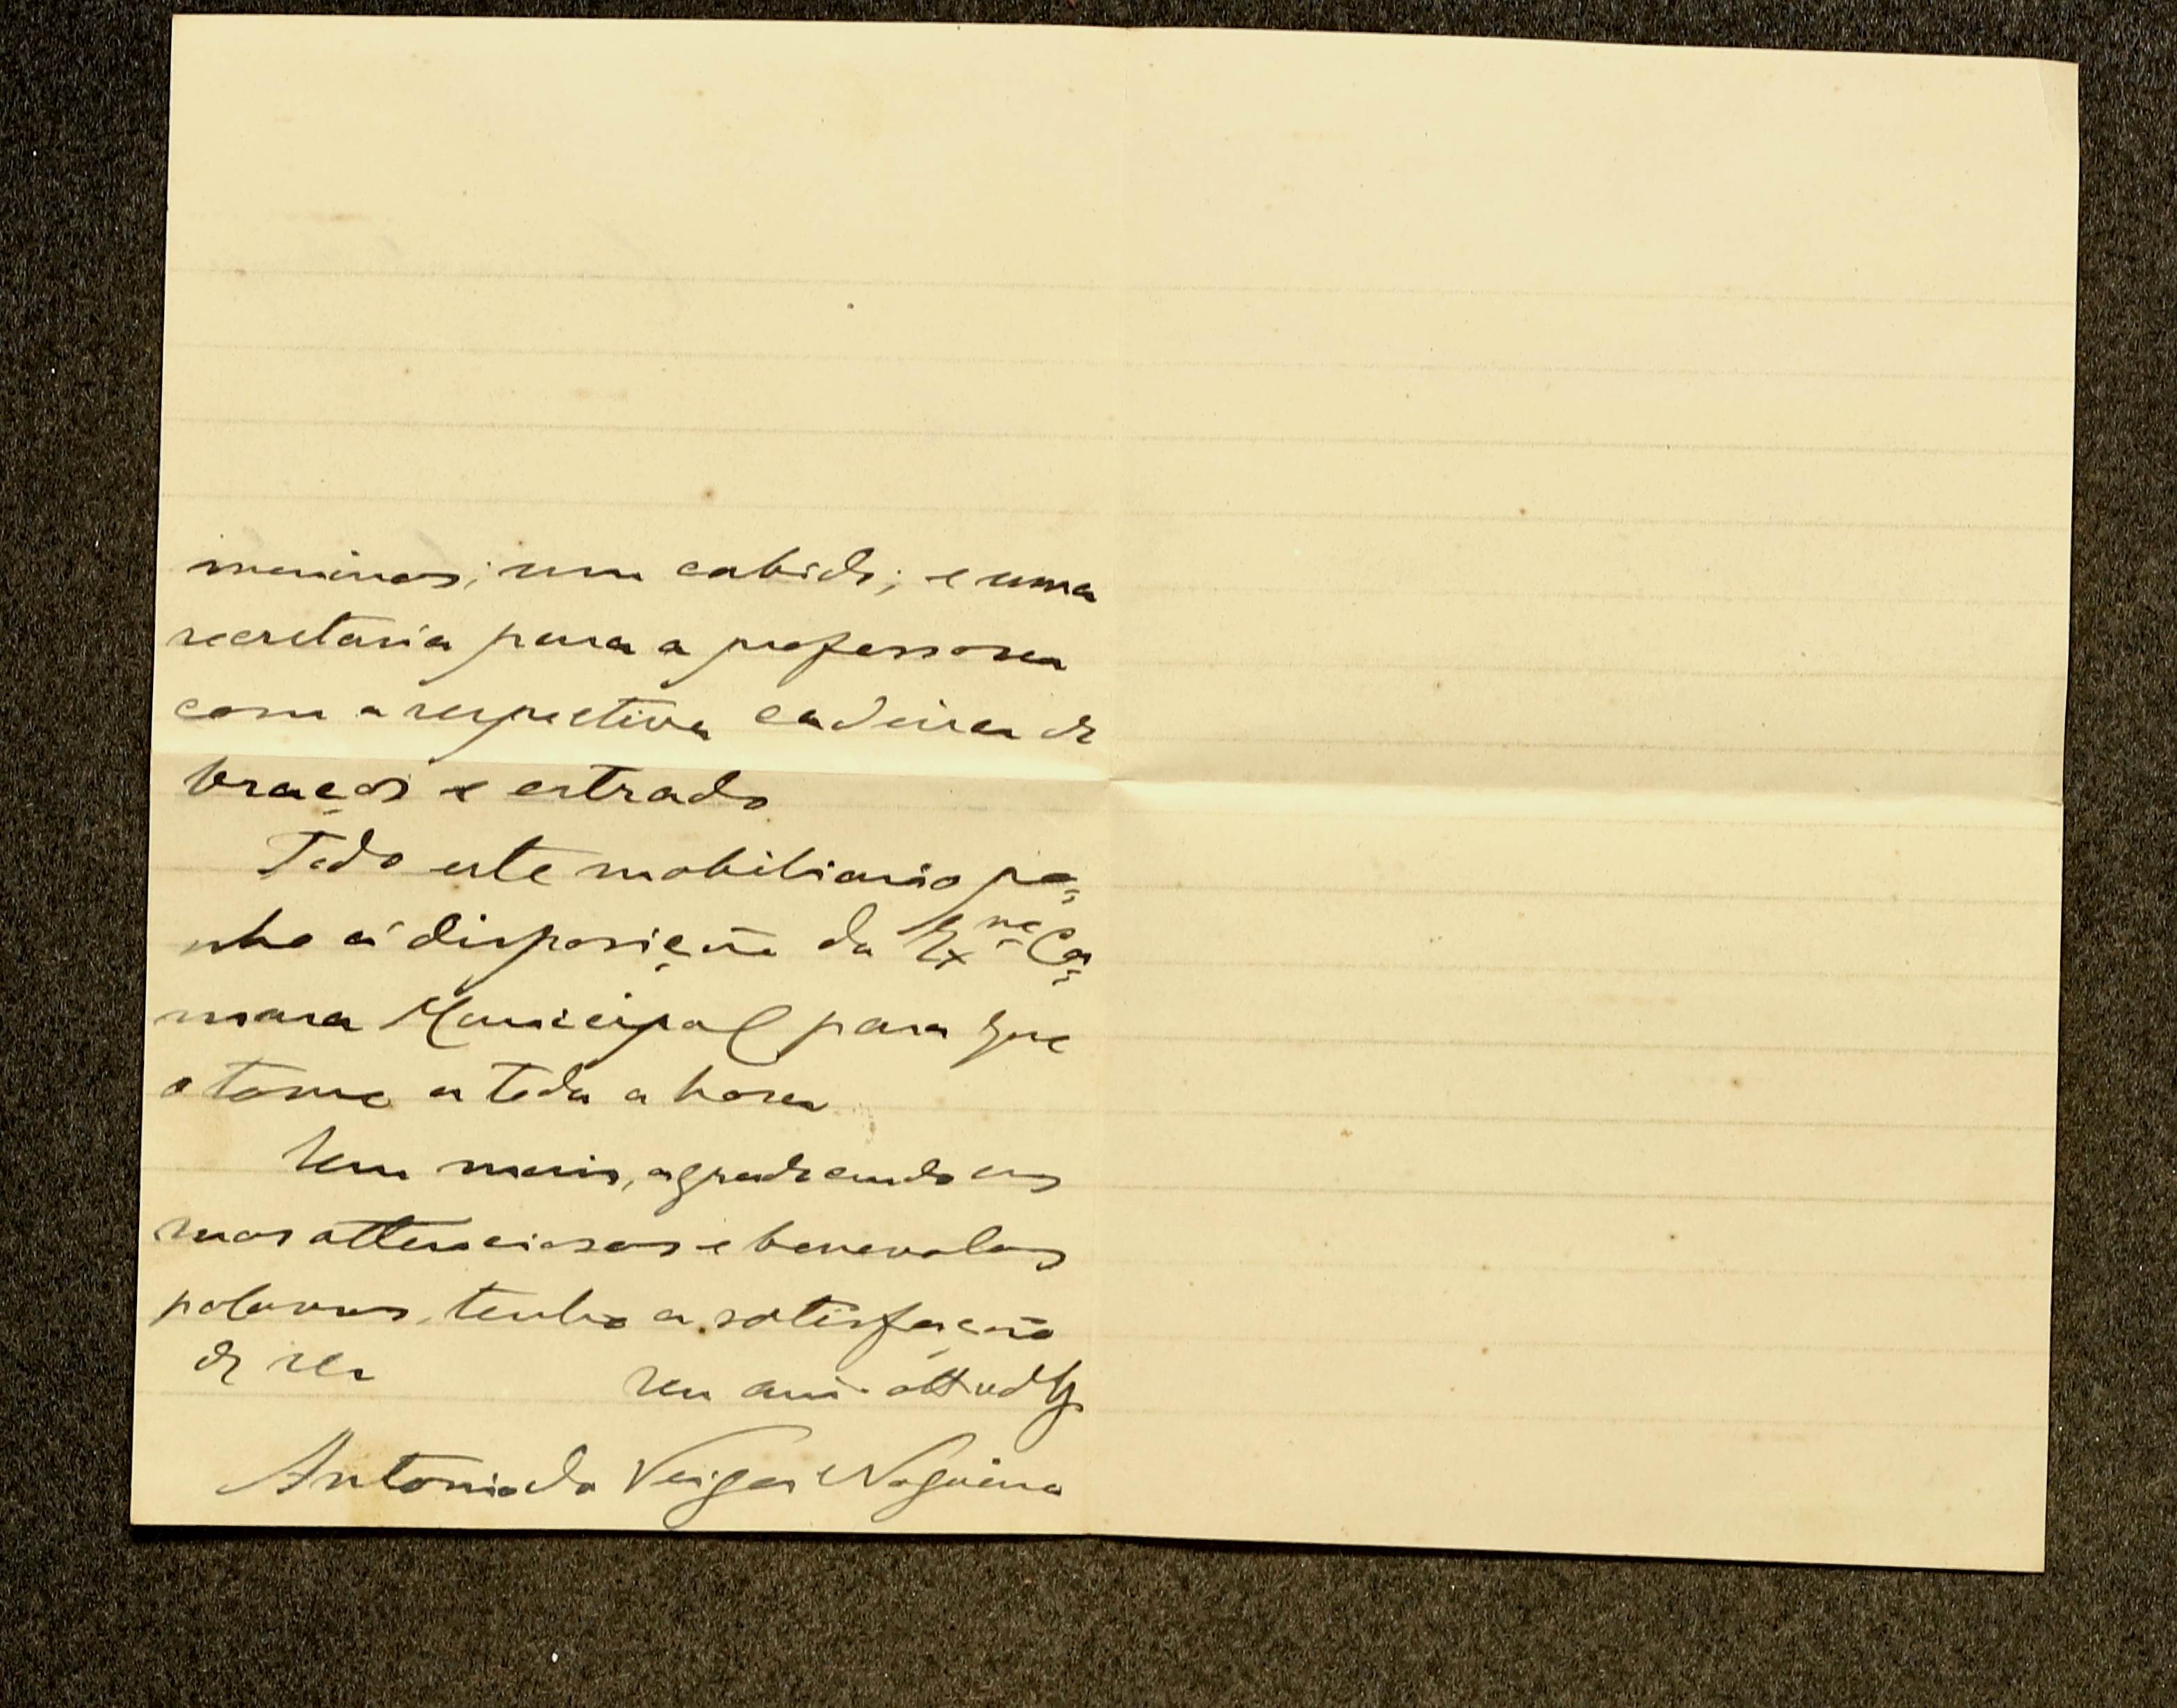 meninas; um cabide; e uma
secretaria para a professora
com a respectiva cadeira de
braços e estrado
Todo este mobiliario po=
nho á disposição da Ex.ma Ca=
mara Municipal para que
o tome a toda a hora
Sem mais, agradecendo as
suas attenciosas e benevolas
palavras, tenho a satisfação
de ser
seu am.
Antonio da Veiga Nogueira